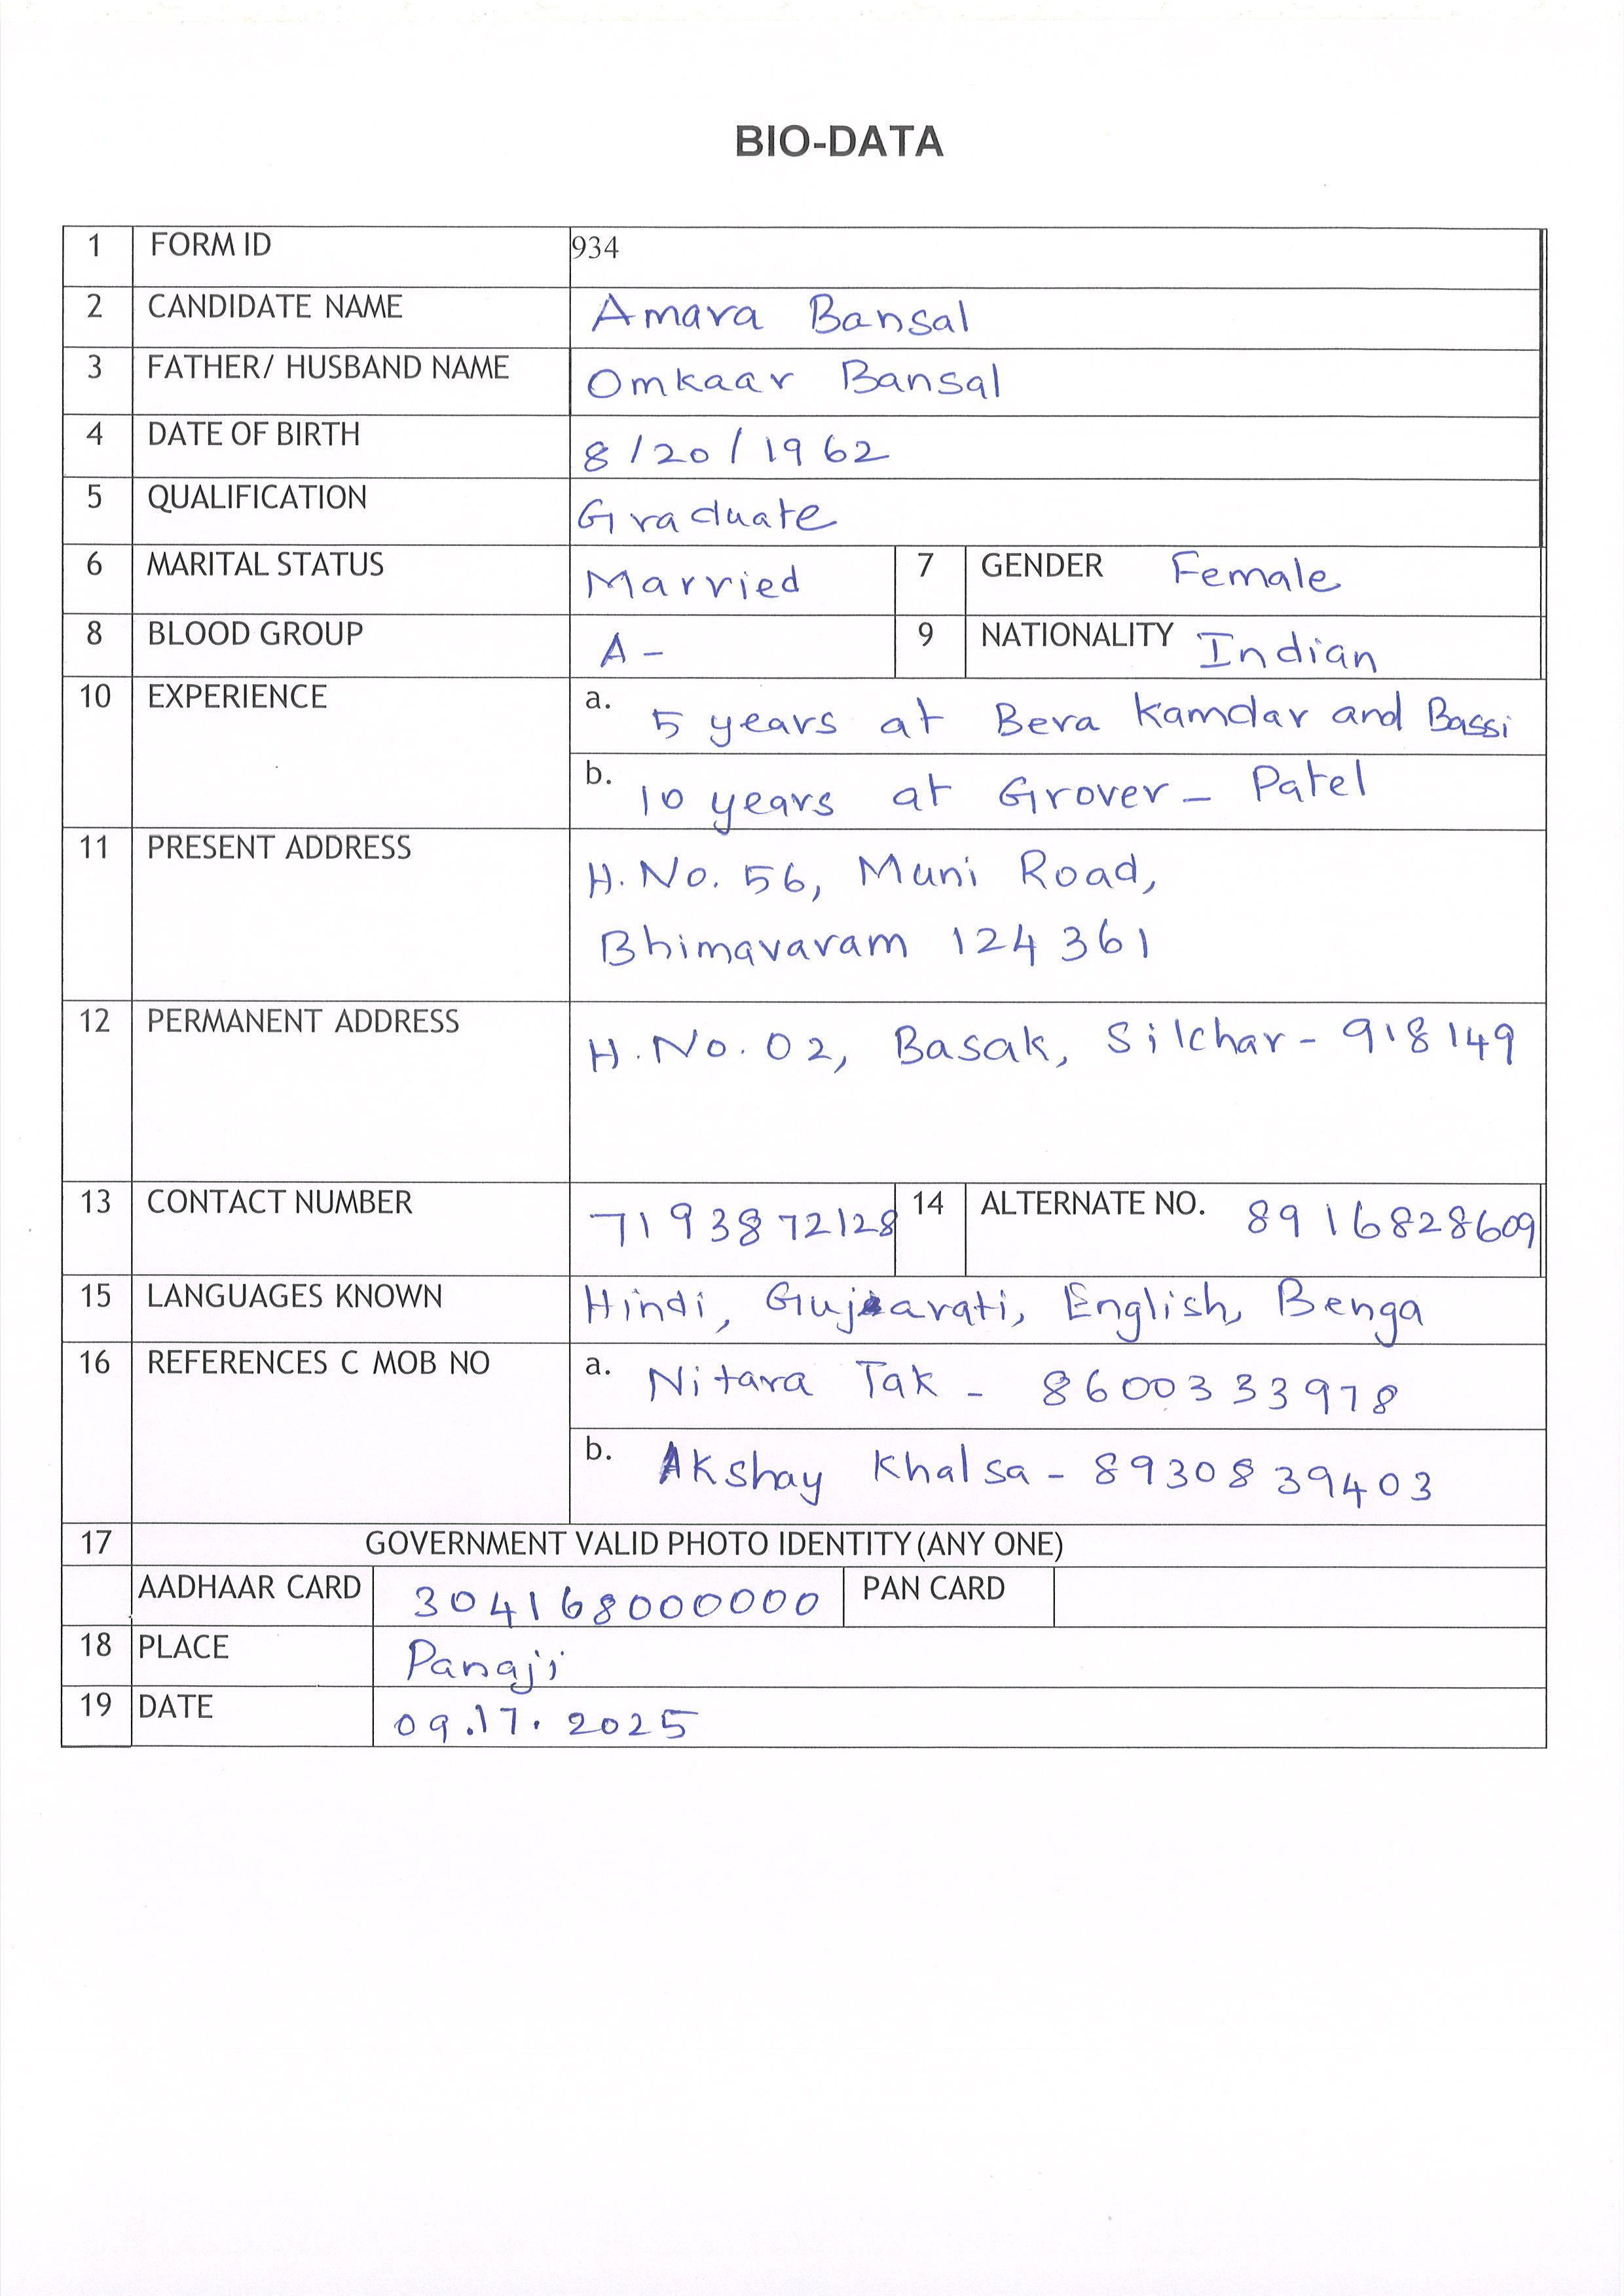 BIO-DATA
1 FORM ID 934
2 CANDIDATE NAME Amara Bansal
3 FATHER/ HUSBAND NAME Omkaar Bansal
4 DATE OF BIRTH 8/20/1962
5 QUALIFICATION Graduate
6 MARITAL STATUS Married 7 GENDER Female
8 BLOOD GROUP A- 9 NATIONALITY Indian
10 EXPERIENCE a. 5 years at Bera Kamdar and Bassi
b. 10 years at Grover - Patel
11 PRESENT ADDRESS H.No. 56, Muni Road,
Bhimavaram 124361
12 PERMANENT ADDRESS H.No. 02, Basak, Silchar - 918149
13 CONTACT NUMBER 7193872128 14 ALTERNATE NO. 8916828609
15 LANGUAGES KNOWN Hindi, Gujarati, English, Benga
16 REFERENCES C MOB NO a. Nitara Tak - 8600333978
b. Akshay Khalsa - 8930839403
17 GOVERNMENT VALID PHOTO IDENTITY (ANY ONE)
AADHAAR CARD 304168000000 PAN CARD
18 PLACE Panaji
19 DATE 09.17.2025